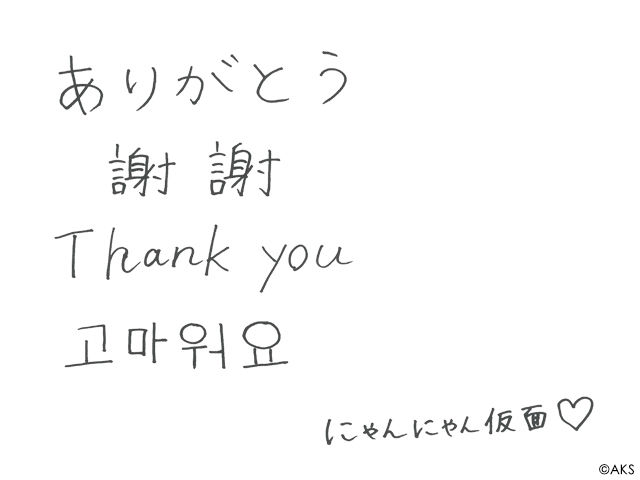 ありがとう
謝謝
Thank you
고마워요
にゃんにゃん仮面♡
©AKS